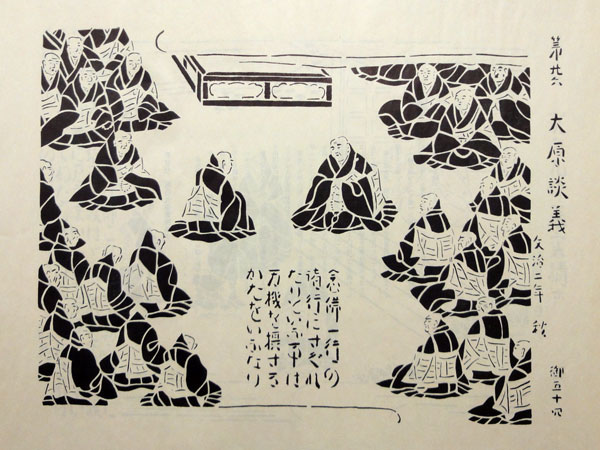 第廿六 大原談義
文治二年 秋
御五十四
念佛一行の
諸行にすぐれ
たりといふ事は
万機を摂する
かたをいふなり